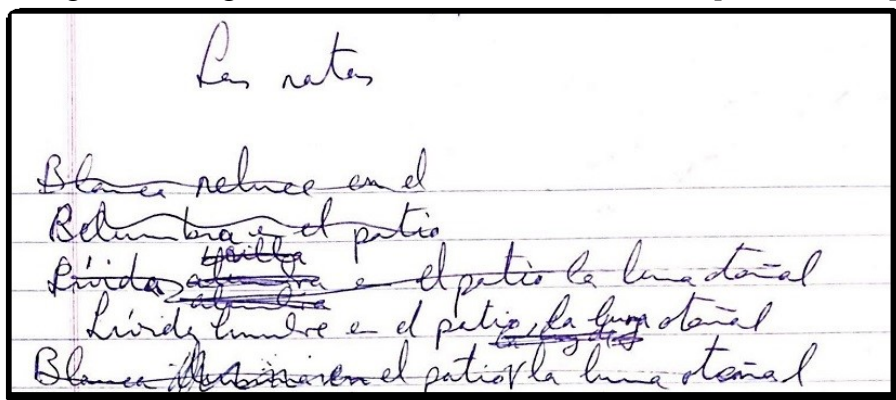 Las ratas
Blanca reluce en el
Belumbra en el patio
brilla
Lívida alumbra en el patio la luna otoñal
alumbra
Lívida lumbre en el patio, la luna otoñal
Blanca en el patio la luna otoñal